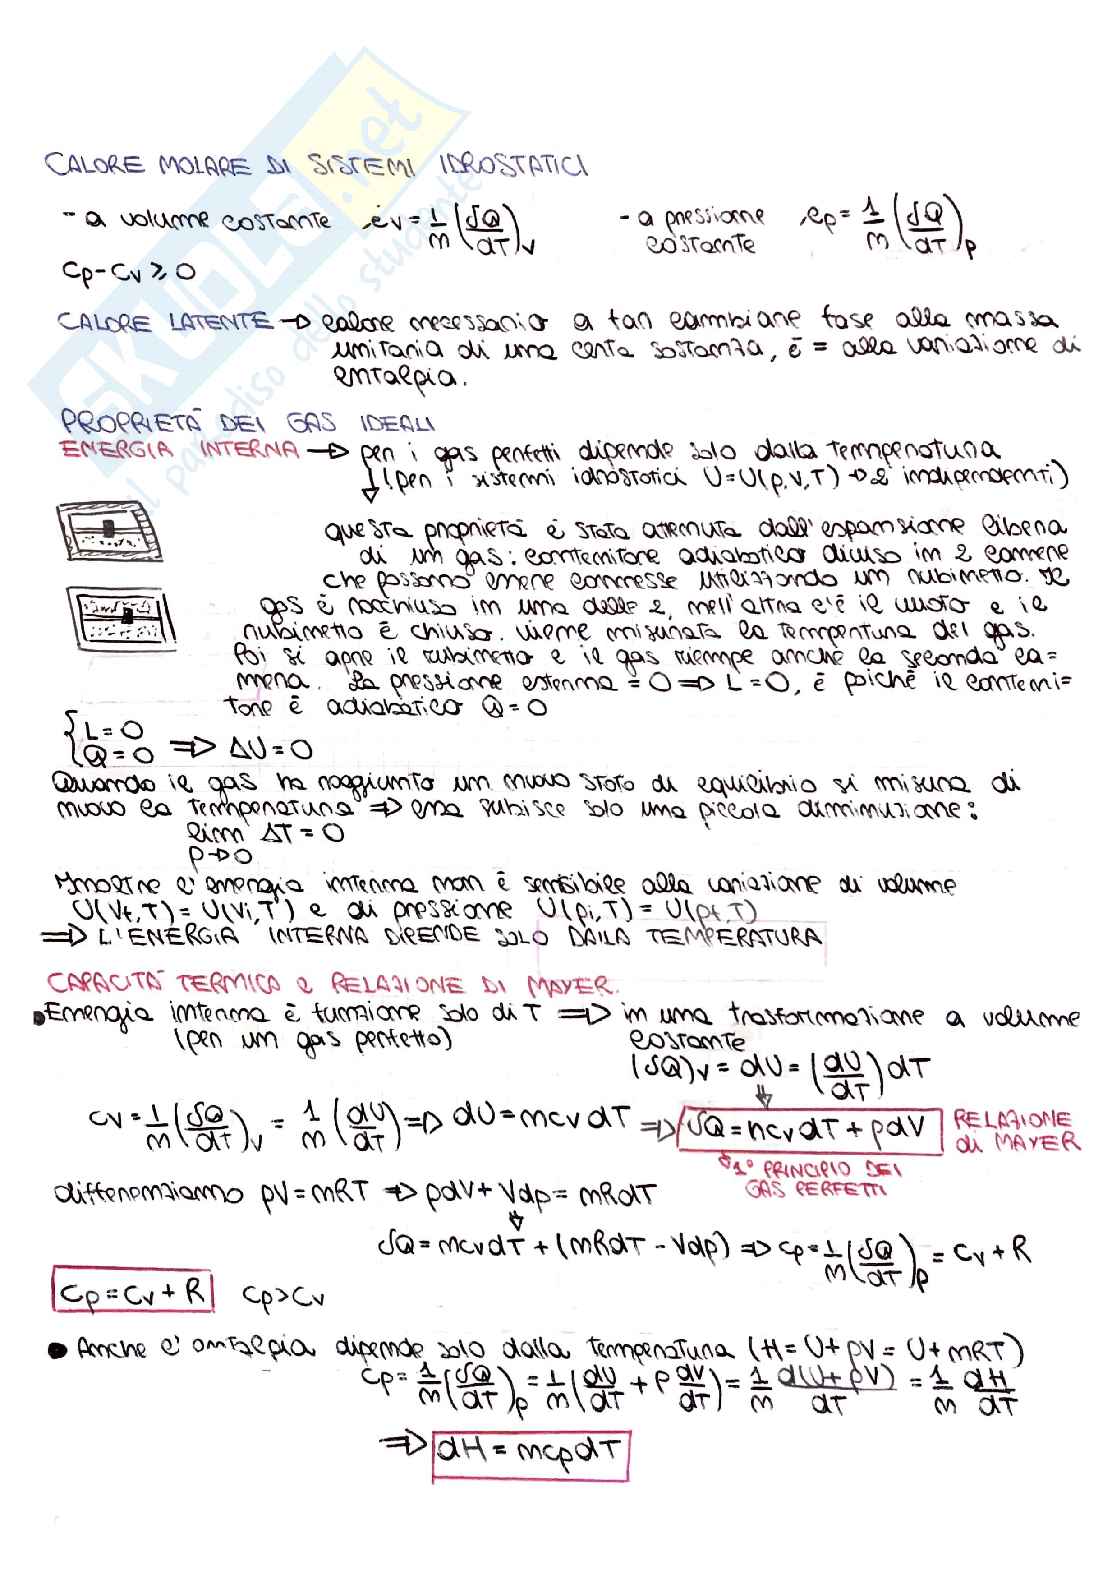 SKUOLA.net
il paradiso dello studente
CALORE MOLARE DI SISTEMI IDROSTATICI
- a volume costante , cv = 1/n (δQ/dT)v - a pressione costante , cp = 1/n (δQ/dT)p
cp - cv ≥ 0
CALORE LATENTE → calore necessario a far cambiare fase alla massa
unitaria di una certa sostanza, è = alla variazione di
entalpia.
PROPRIETÀ DEI GAS IDEALI
ENERGIA INTERNA → per i gas perfetti dipende solo dalla temperatura
↓ (per i sistemi idrostatici U=U(p,V,T) → 2 indipendenti)
questa proprietà è stata ottenuta dall'espansione libera
di un gas: contenitore adiabatico diviso in 2 camere
che possono essere connesse utilizzando un rubinetto. Il
gas è racchiuso in una delle 2, nell'altra c'è il vuoto e il
rubinetto è chiuso. Viene misurata la tempertura del gas.
Poi si apre il rubinetto e il gas riempe anche la seconda ca=
mera. La pressione esterna = 0 ⇒ L = 0, e poichè il conteni=
tore è adiabatico Q = 0
{ L = 0
{ Q = 0 ⇒ ΔU = 0
Quando il gas ha raggiunto un nuovo stato di equilibrio si misura di
nuovo la temperatura ⇒ essa subisce solo una piccola diminuzione:
lim ΔT = 0
p→0
Inoltre l'energia interna non è sensibile alla variazione di volume
U(Vf,T) = U(Vi,T) e di pressione U(pi,T) = U(pf,T)
⇒ L'ENERGIA INTERNA DIPENDE SOLO DALLA TEMPERATURA
CAPACITÀ TERMICA e RELAZIONE DI MAYER.
• Energia interna è funzione solo di T ⇒ in una trasformazione a volume
(per un gas perfetto) costante
(δQ)v = dU = (dU/dT) dT
cv = 1/n (δQ/dT)v = 1/n (dU/dT) ⇒ dU = ncv dT ⇒ δQ = ncv dT + pdV RELAZIONE di MAYER
↓ 1° PRINCIPIO DEI
GAS PERFETTI
differenziamo pV = nRT ⇒ pdV + Vdp = nRdT
δQ = ncv dT + (nRdT - Vdp) ⇒ cp = 1/n (δQ/dT)p = cv + R
cp = cv + R cp > cv
• Anche l'entalpia dipende solo dalla temperatura (H = U + pV = U + nRT)
cp = 1/n (δQ/dT)p = 1/n (dU/dT + p dV/dT) = 1/n d(U + pV)/dT = 1/n dH/dT
⇒ dH = ncp dT